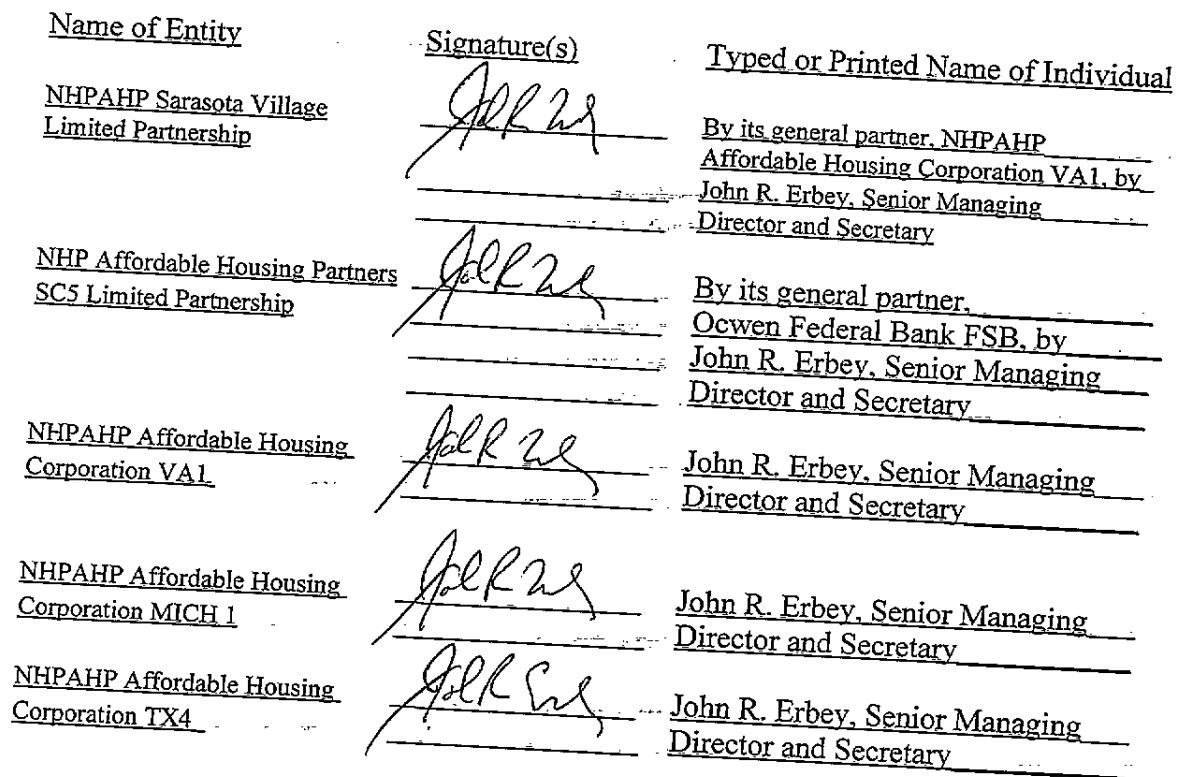 Name of Entity
Signature(s)
Typed or Printed Name of Individual
NHPAHP Sarasota Village
Limited Partnership
By its general partner, NHPAHP
Affordable Housing Corporation VA1, by
John R. Erbey, Senior Managing
Director and Secretary
NHP Affordable Housing Partners
SC5 Limited Partnership
By its general partner,
Ocwen Federal Bank FSB, by
John R. Erbey, Senior Managing
Director and Secretary
NHPAHP Affordable Housing
Corporation VA1
John R. Erbey, Senior Managing
Director and Secretary
NHPAHP Affordable Housing
Corporation MICH 1
John R. Erbey, Senior Managing
Director and Secretary
NHPAHP Affordable Housing
Corporation TX4
John R. Erbey, Senior Managing
Director and Secretary